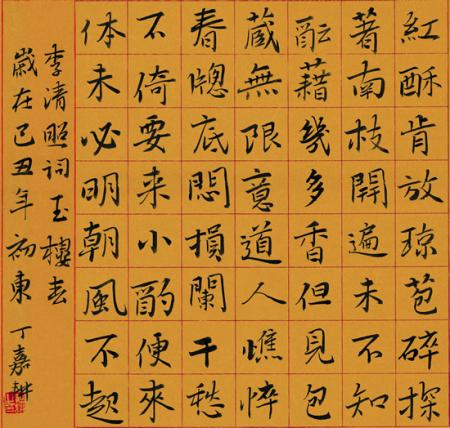 紅酥肯放琼苞碎探
著南枝開遍未不知
酝藉幾多香但見包
藏無限意道人憔悴
春牕底悶損闌干愁
不倚要来小酌便來
休未必明朝風不起
李清照詞玉樓春
歲在己丑年初東 丁嘉耕